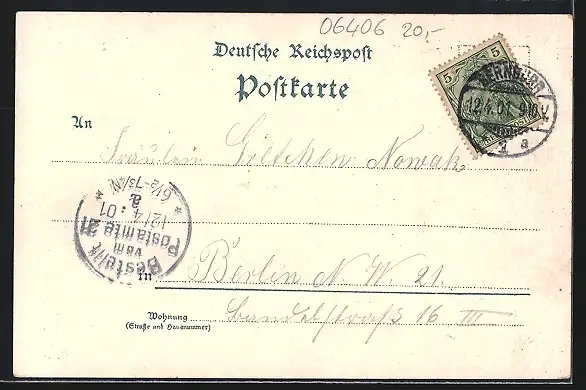 06406 20,-
Deutsche Reichspost
Postkarte
5 5
BERNBURG
12.4.01
a
An
Fräulein Gretchen Nowak
6½-7½N.
a
12/4.01
Postamte 21
vom
Bestellt
in Berlin N.W. 21.
Wohnung
(Straße und Hausnummer)
Bandelstraß 16 III